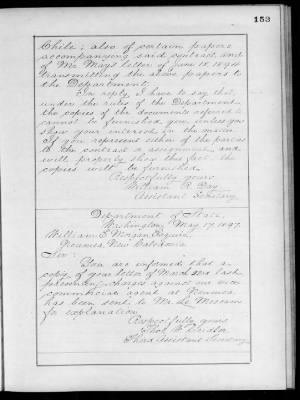 153
Chile; also of certain papers
accompanying said contract, and
of Mr. May's letter of June 18, 1894
transmitting the above papers to
the Department.
In reply, I have to say that,
under the rules of the Department,
the copies of the documents referred to
cannot be furnished you, unless you
show your interest in the matter.
If you represent either of the parties
to the contract or assignment, and
will properly show this fact, the
copies will be furnished.
Respectfully yours
William R. Day
Assistant Secretary.
Department of State,
Washington, May 17, 1897.
William E. Morgan Esquire,
Noumea, New Caledonia.
Sir:
You are informed that a
copy of your letter of March last
charges against our vice
commercial agent at Noumea
has been sent to Mr. Le Mescam
for explanation.
Respectfully yours
Thos. W. Cridler
Third Assistant Secretary.